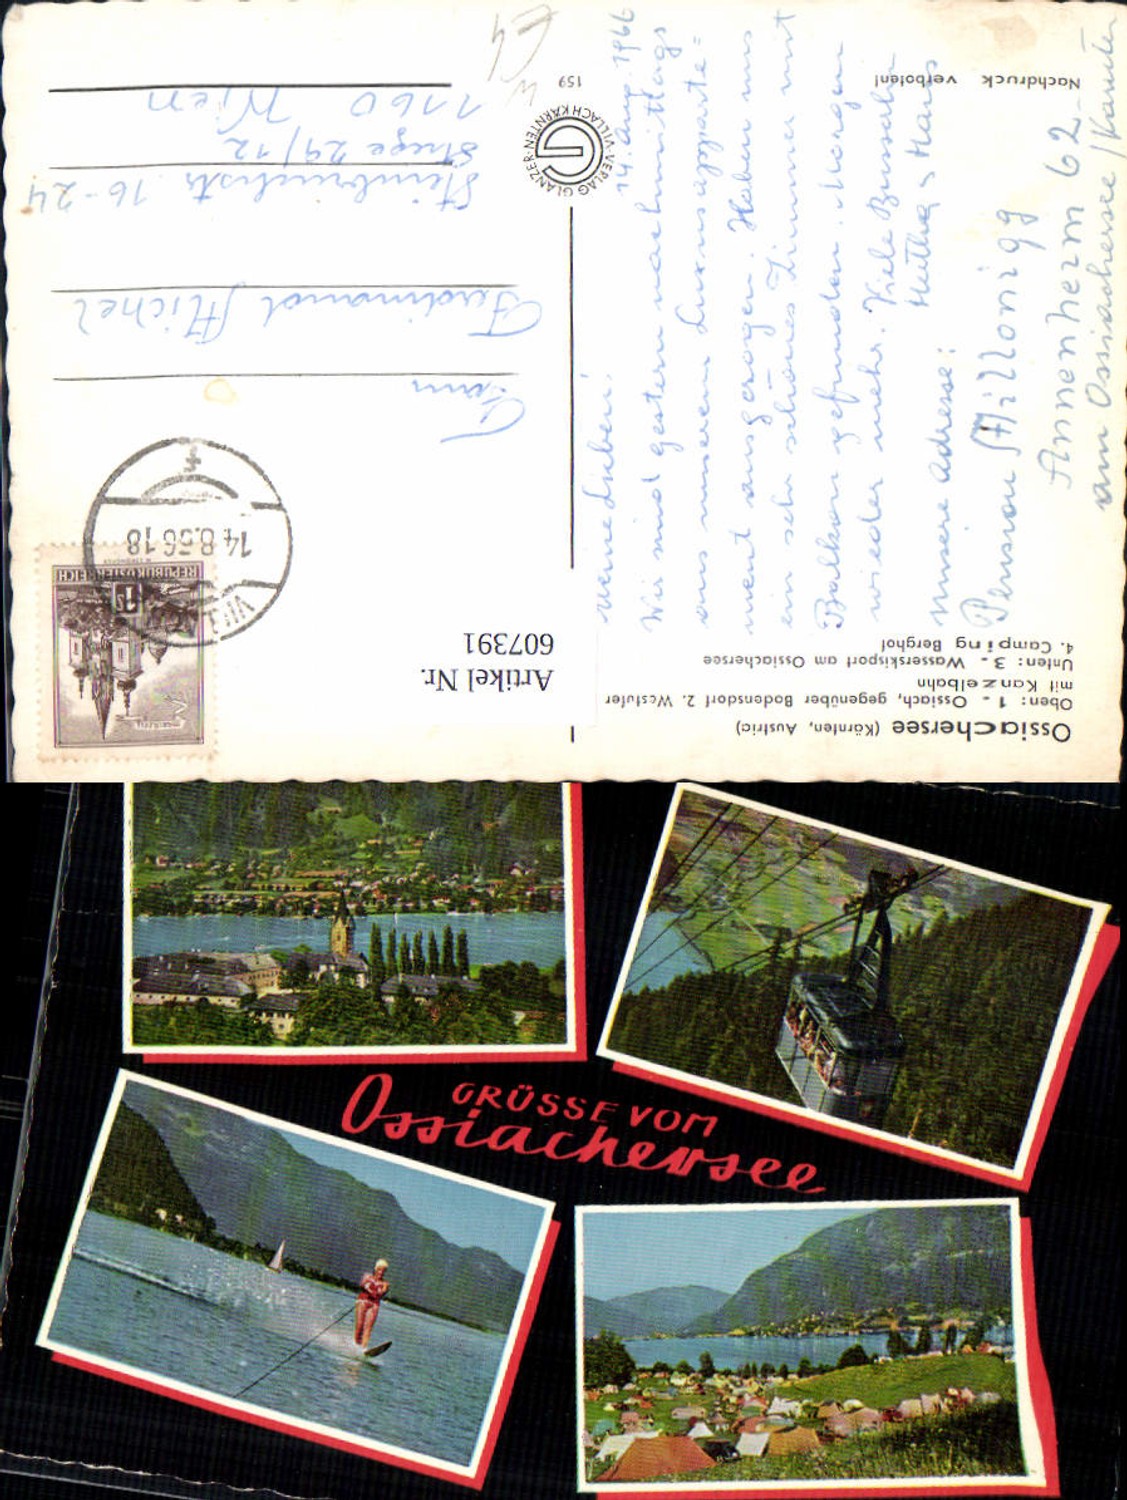 Ossiachersee (Kärnten, Austria)
Oben: 1. Ossiach, gegenüber Bodensdorf 2. Westufer
mit Kanzelbahn
Unten: 3. Wasserskisport am Ossiachersee
4. Camping Berghof
Nachdruck verboten!
14. Aug. 1966
meine Lieben!
Wir sind gestern nachmittags
aus unserem Luxusapparte=
ment ausgezogen. Haben uns
ein sehr schönes Zimmer mit
Balkon gefunden. Morgen
wieder mehr. Viele Bussaln
Hertha & Hans
unsere Adresse:
Pension Millonigg
Annenheim 62
am Ossiachersee / Kärnten
VERLAG GLANZER · VILLACH KÄRNTEN
159
Artikel Nr.
607391
REPUBLIK ÖSTERREICH
1 S
14.8.66 18
Ferdinand Michel
Steinbruchstr. 16-24
Stiege 29/12
1160 Wien
GRÜSSE VOM
Ossiachersee